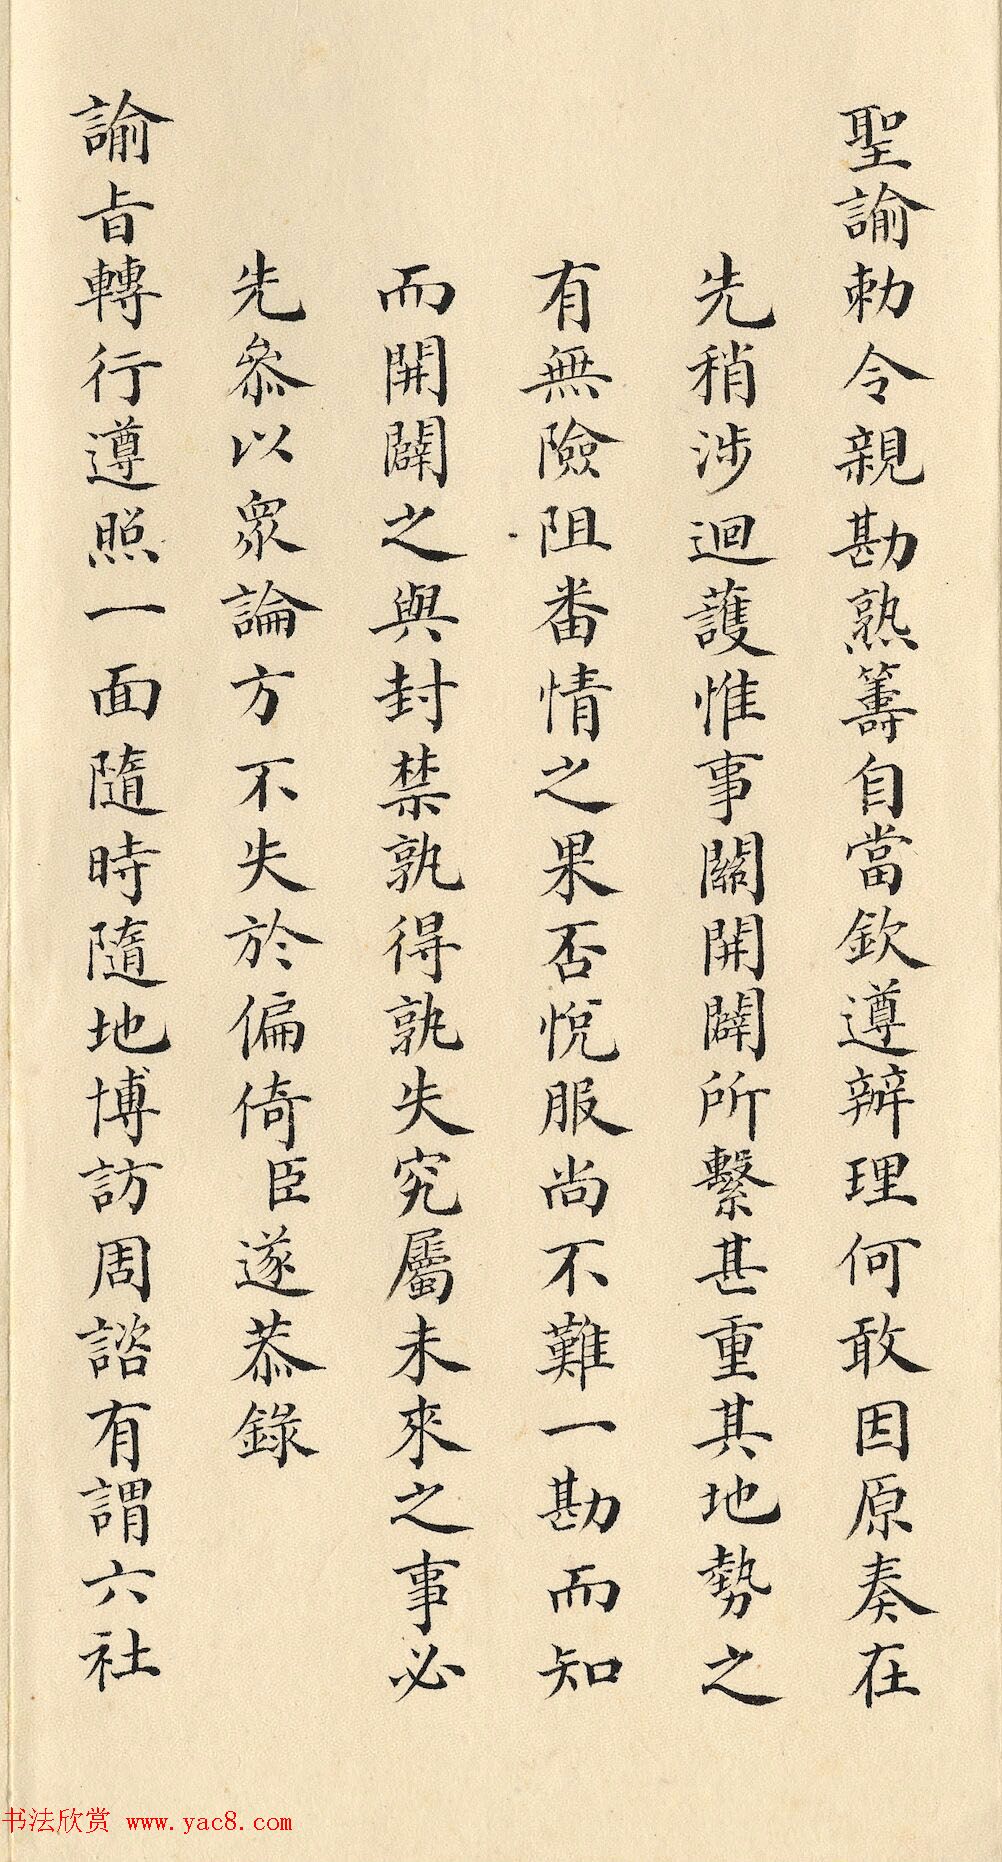 聖諭勅令親勘熟籌自當欽遵辦理何敢因原奏在
先稍涉迴護惟事關開闢所繫甚重其地勢之
有無險阻番情之果否悅服尚不難一勘而知
而開闢之與封禁孰得孰失究屬未來之事必
先叅以眾論方不失於偏倚臣遂恭錄
諭旨轉行遵照一面隨時隨地博訪周諮有謂六社
书法欣赏 www.yac8.com